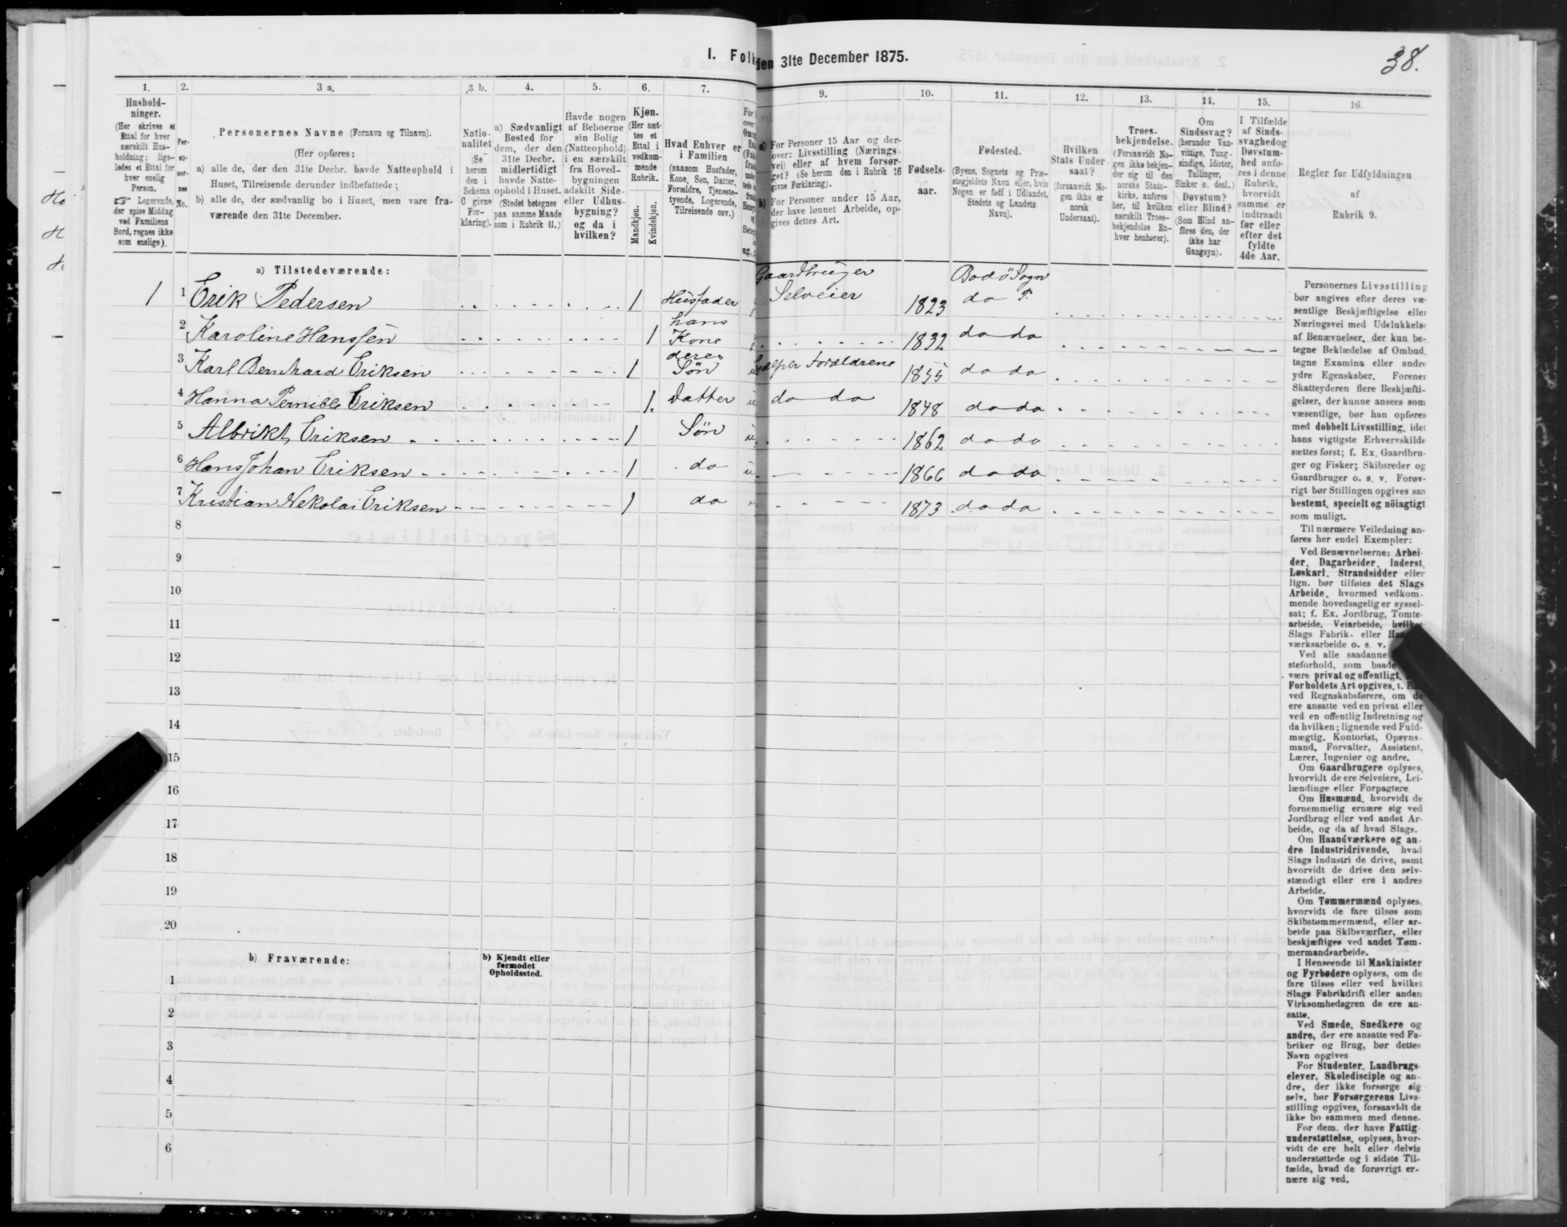 38.
I. Folk
den 31te December 1875.
1.
2.
3 a.
3 b.
4.
5.
6.
7.
9.
10.
11.
12.
13.
14.
15.
16.
Hushold-
ninger.
(Her skrives et
Ettal for hver
særskilt Hus-
holdning; lige-
ledes et Ettal for
hver enslig
Person.
☞ Logerende,
der spise Middag
ved Familiens
Bord, regnes ikke
som enslige).
Per-
so-
ner-
nes
No.
Personernes Navne (Fornavn og Tilnavn).
(Her opføres:
a) alle de, der den 31te Decbr. havde Natteophold i
Huset, Tilreisende derunder indbefattede;
b) alle de, der sædvanlig bo i Huset, men vare fra-
værende den 31te December.
Natio-
nalitet
(Se
herom
den i
Schema
C givne
For-
klaring).
a) Sædvanligt
Bosted for
dem, der den
31te Decbr.
midlertidigt
havde Natte-
ophold i Huset.
(Stedet betegnes
paa samme Maade
som i Rubrik 11.)
Havde nogen
af Beboerne
sin Bolig
(Natteophold)
i en særskilt
fra Hoved-
bygningen
adskilt Side-
eller Udhus-
bygning?
og da i
hvilken?
Kjøn.
(Her sæt-
tes et
Ettal i
vedkom-
mende
Rubrik.
Mandkjøn.
Kvindekjøn.
Hvad Enhver er
i Familien
(saasom Husfader,
Kone, Søn, Datter,
Forældre, Tjeneste-
tyende, Logerende,
Tilreisende osv.)
a) For Personer 15 Aar og der-
over: Livsstilling (Nærings-
vei) eller af hvem forsør-
get? (Se herom den i Rubrik 16
givne Forklaring).
b) For Personer under 15 Aar,
der have lønnet Arbeide, op-
gives dettes Art.
Fødsels-
aar.
Fødested.
(Byens, Sognets og Præ-
stegjeldets Navn eller, hvis
Nogen er født i Udlandet,
Stedets og Landets
Navn).
Hvilken
Stats Under-
saat?
(forsaavidt No-
gen ikke er
norsk
Undersaat).
Troes-
bekjendelse.
(Forsaavidt No-
gen ikke bekjen-
der sig til den
norske Stats-
kirke, anføres
her, til hvilken
særskilt Troes-
bekjendelse En-
hver henhører).
Om
Sindssvag?
(herunder Van-
vittige, Tung-
sindige, Idioter,
Sinker o. desl.)
Døvstum?
eller Blind?
(Som Blind an-
føres den, der
ikke har
Gangsyn).
I Tilfælde
af Sinds-
svaghed og
Døvstum-
hed anfø-
res i denne
Rubrik,
hvorvidt
samme er
indtraadt
før eller
efter det
fyldte
4de Aar.
Regler for Udfyldningen
af
Rubrik 9.
a) Tilstedeværende:
Gaardbruger
Bodø Sogn
1 1 Erik Pedersen 1 Husfader Selveier 1823 do P.
hans
2 Karoline Hanssen 1 Kone 1832 do do
deres
3 Karl Bernhard Eriksen 1 Søn hjelper Forældrene 1855 do do
4 Hanna Pernille Eriksen 1. Datter do do 1848 do do
5 Albrikt Eriksen 1 Søn 1862 do do
6 Hans Johan Eriksen 1 do 1866 do do
7 Kristian Nekolai Eriksen 1 do 1873 do do
8
9
10
11
12
13
14
15
16
17
18
19
20
b) Fraværende:
b) Kjendt eller
formodet
Opholdssted.
1
2
3
4
5
6
Personernes Livsstilling
bør angives efter deres væ-
sentlige Beskjæftigelse eller
Næringsvei med Udelukkelse
af Benævnelser, der kun be-
tegne Beklædelse af Ombud,
tagne Examina eller andre
ydre Egenskaber. Forener
Skatteyderen flere Beskjæfti-
gelser, der kunne ansees som
væsentlige, bør han opføres
med dobbelt Livsstilling, idet
hans vigtigste Erhvervskilde
sættes først; f. Ex. Gaardbru-
ger og Fisker; Skibsreder og
Gaardbruger o. s. v. Forøv-
rigt bør Stillingen opgives saa
bestemt, specielt og nöiagtigt
som muligt.
Til nærmere Veiledning an-
føres her endel Exempler:
Ved Benævnelserne: Arbei-
der, Dagarbeider, Inderst,
Løskarl, Strandsidder eller
lign. bør tilføies det Slags
Arbeide, hvormed vedkom-
mende hovedsagelig er syssel-
sat; f. Ex. Jordbrug, Tomte-
arbeide, Veiarbeide, hvilket
Slags Fabrik- eller
værksarbeide o. s. v.
Ved alle saadanne
steforhold, som baade
være privat og offentligt,
Forholdets Art opgives, t.
ved Regnskabsførere, om de
ere ansatte ved en privat eller
ved en offentlig Indretning og
da hvilken; lignende ved Fuld-
mægtig, Kontorist, Opsyns-
mand, Forvalter, Assistent,
Lærer, Ingeniør og andre.
Om Gaardbrugere oplyses,
hvorvidt de ere Selveiere, Lei-
lændinge eller Forpagtere.
Om Husmænd, hvorvidt de
fornemmelig ernære sig ved
Jordbrug eller ved andet Ar-
beide, og da af hvad Slags.
Om Haandværkere og an-
dre Industridrivende, hvad
Slags Industri de drive, samt
hvorvidt de drive den selv-
stændigt eller ere i andres
Arbeide.
Om Tømmermænd oplyses,
hvorvidt de fare tilsøs som
Skibstømmermænd, eller ar-
beide paa Skibsværfter, eller
beskjæftiges ved andet Tøm-
mermandsarbeide.
I Henseende til Maskinister
og Fyrbødere oplyses, om de
fare tilsøs eller ved hvilket
Slags Fabrikdrift eller anden
Virksomhedsgren de ere an-
satte.
Ved Smede, Snedkere og
andre, der ere ansatte ved Fa-
briker og Brug, bør dettes
Navn opgives
For Studenter, Landbrugs-
elever, Skoledisciple og an-
dre, der ikke forsørge sig
selv, bør Forsørgerens Livs-
stilling opgives, forsaavidt de
ikke bo sammen med denne.
For dem, der have Fattig-
understøttelse, oplyses, hvor-
vidt de ere helt eller delvis
understøttede og i sidste Til-
fælde, hvad de forøvrigt er-
nære sig ved.